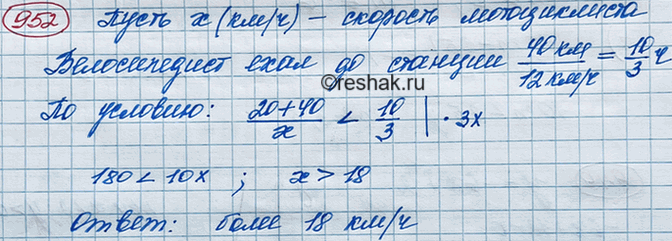 952 Пусть x (км/ч) – скорость мотоциклиста
Велосипедист ехал до станции 40 км / 12 км/ч = 10/3 ч
©reshak.ru
По условию: (20+40)/x < 10/3 | · 3x
180 < 10x ; x > 18
Ответ: более 18 км/ч